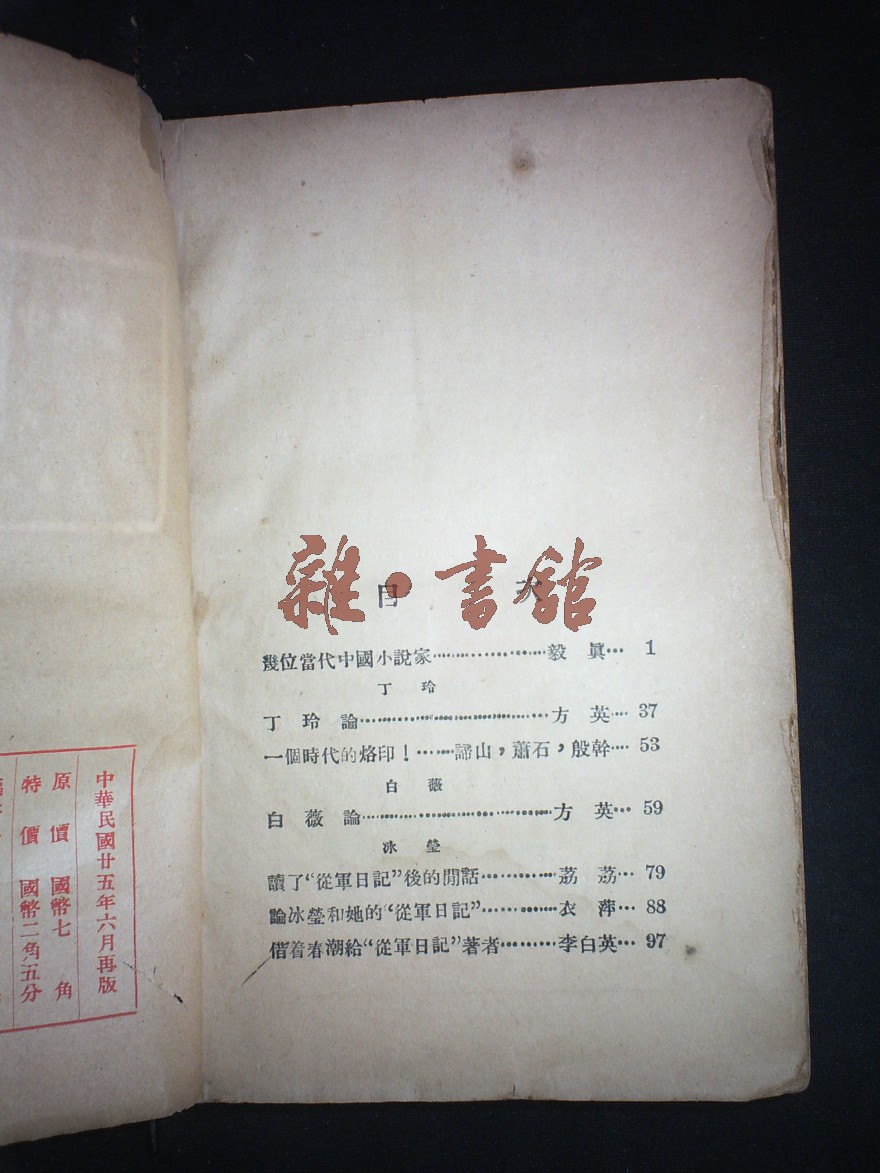 目 次
雜·書館
幾位當代中國小說家………………毅 眞… 1
丁 玲
丁 玲 論………………………方 英… 37
一個時代的烙印!……諦山,蕭石,殷幹… 53
白 薇
白 薇 論………………………方 英… 59
冰 瑩
讀了“從軍日記”後的閒話…………荔 荔… 79
論冰瑩和她的“從軍日記”…………衣 萍… 88
借着春潮給“從軍日記”著者………李白英… 97
中華民國廿五年六月再版
原價 國幣七角
特價 國幣二角五分